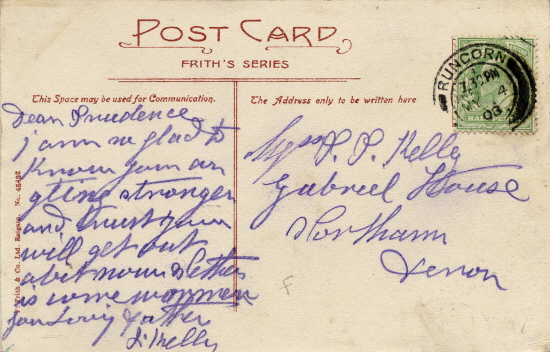 POST CARD
FRITH'S SERIES
This Space may be used for Communication.
The Address only to be written here
RUNCORN
7.30 PM
4
06
Dear Prudence
I am so glad to
know you ar
gting stronger
and trust you
will get out
abit now
is worm
your loving father
J. Kelly
Miss P. P. Kelly
Gabriel House
Northam
Devon
Frith & Co. Ltd. Reigate. No.
F